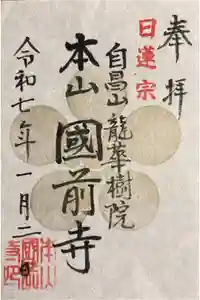 奉拝
日蓮宗
自昌山龍華樹院
本山 國前寺
令和七年一月二日